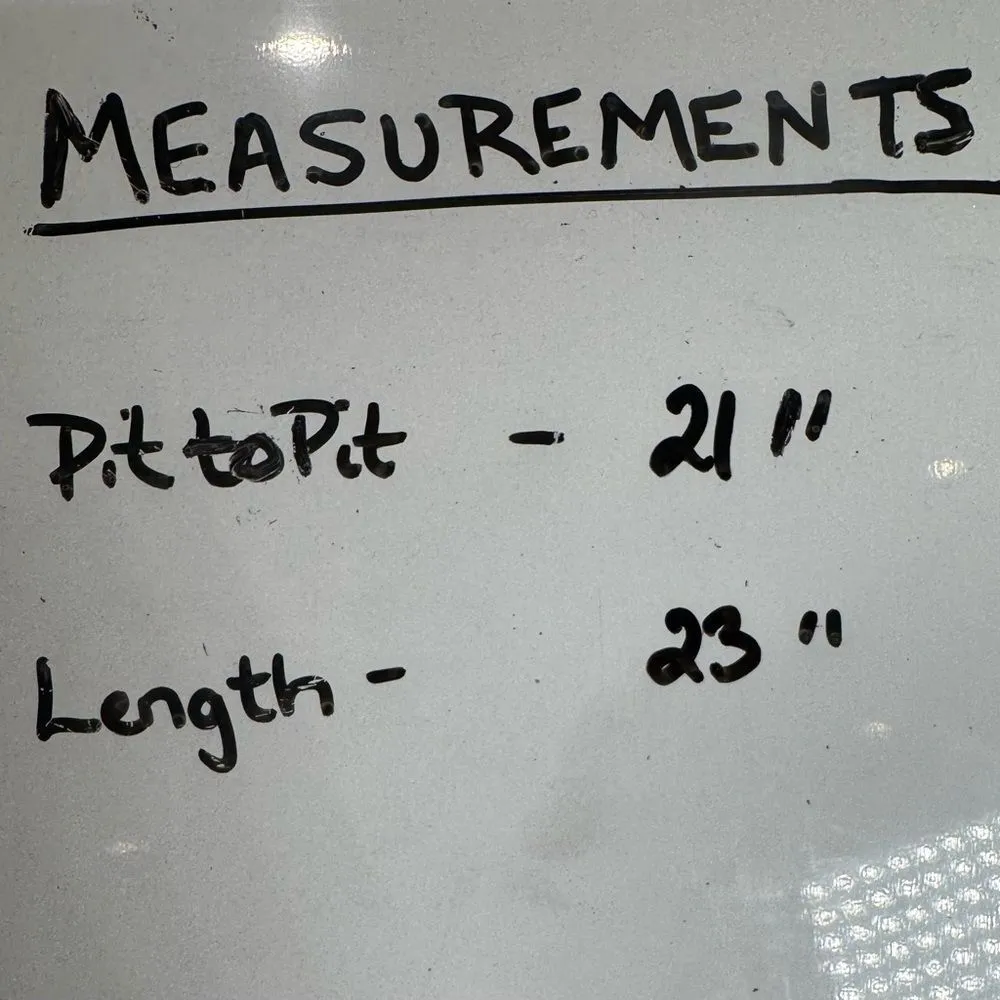 MEASUREMENTS
Pit to Pit - 21"
Length - 23"